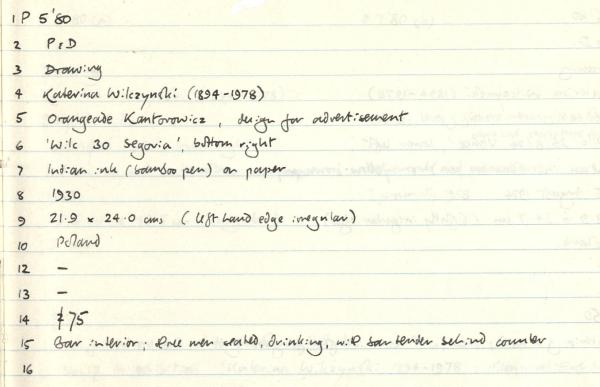 1 P 5'80
2 P&D
3 Drawing
4 Katerina Wilczynski (1894-1978)
5 Orangeade Kantorowicz, design for advertisement
6 'Wilc 30 Segovia', bottom right
7 Indian ink (bamboo pen) on paper
8 1930
9 21.9 x 24.0 cms (left hand edge irregular)
10 Poland
12 -
13 -
14 £75
15 Bar interior; three men seated, drinking, with bartender behind counter
16